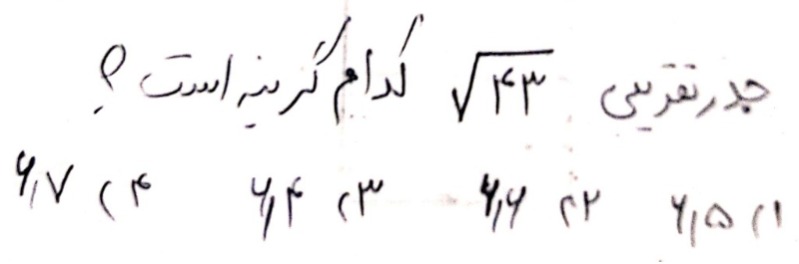 جذر تقریبی √۴۳ کدام گزینه است؟
۱) ۶٫۵ ۲) ۶٫۶ ۳) ۶٫۴ ۴) ۶٫۷